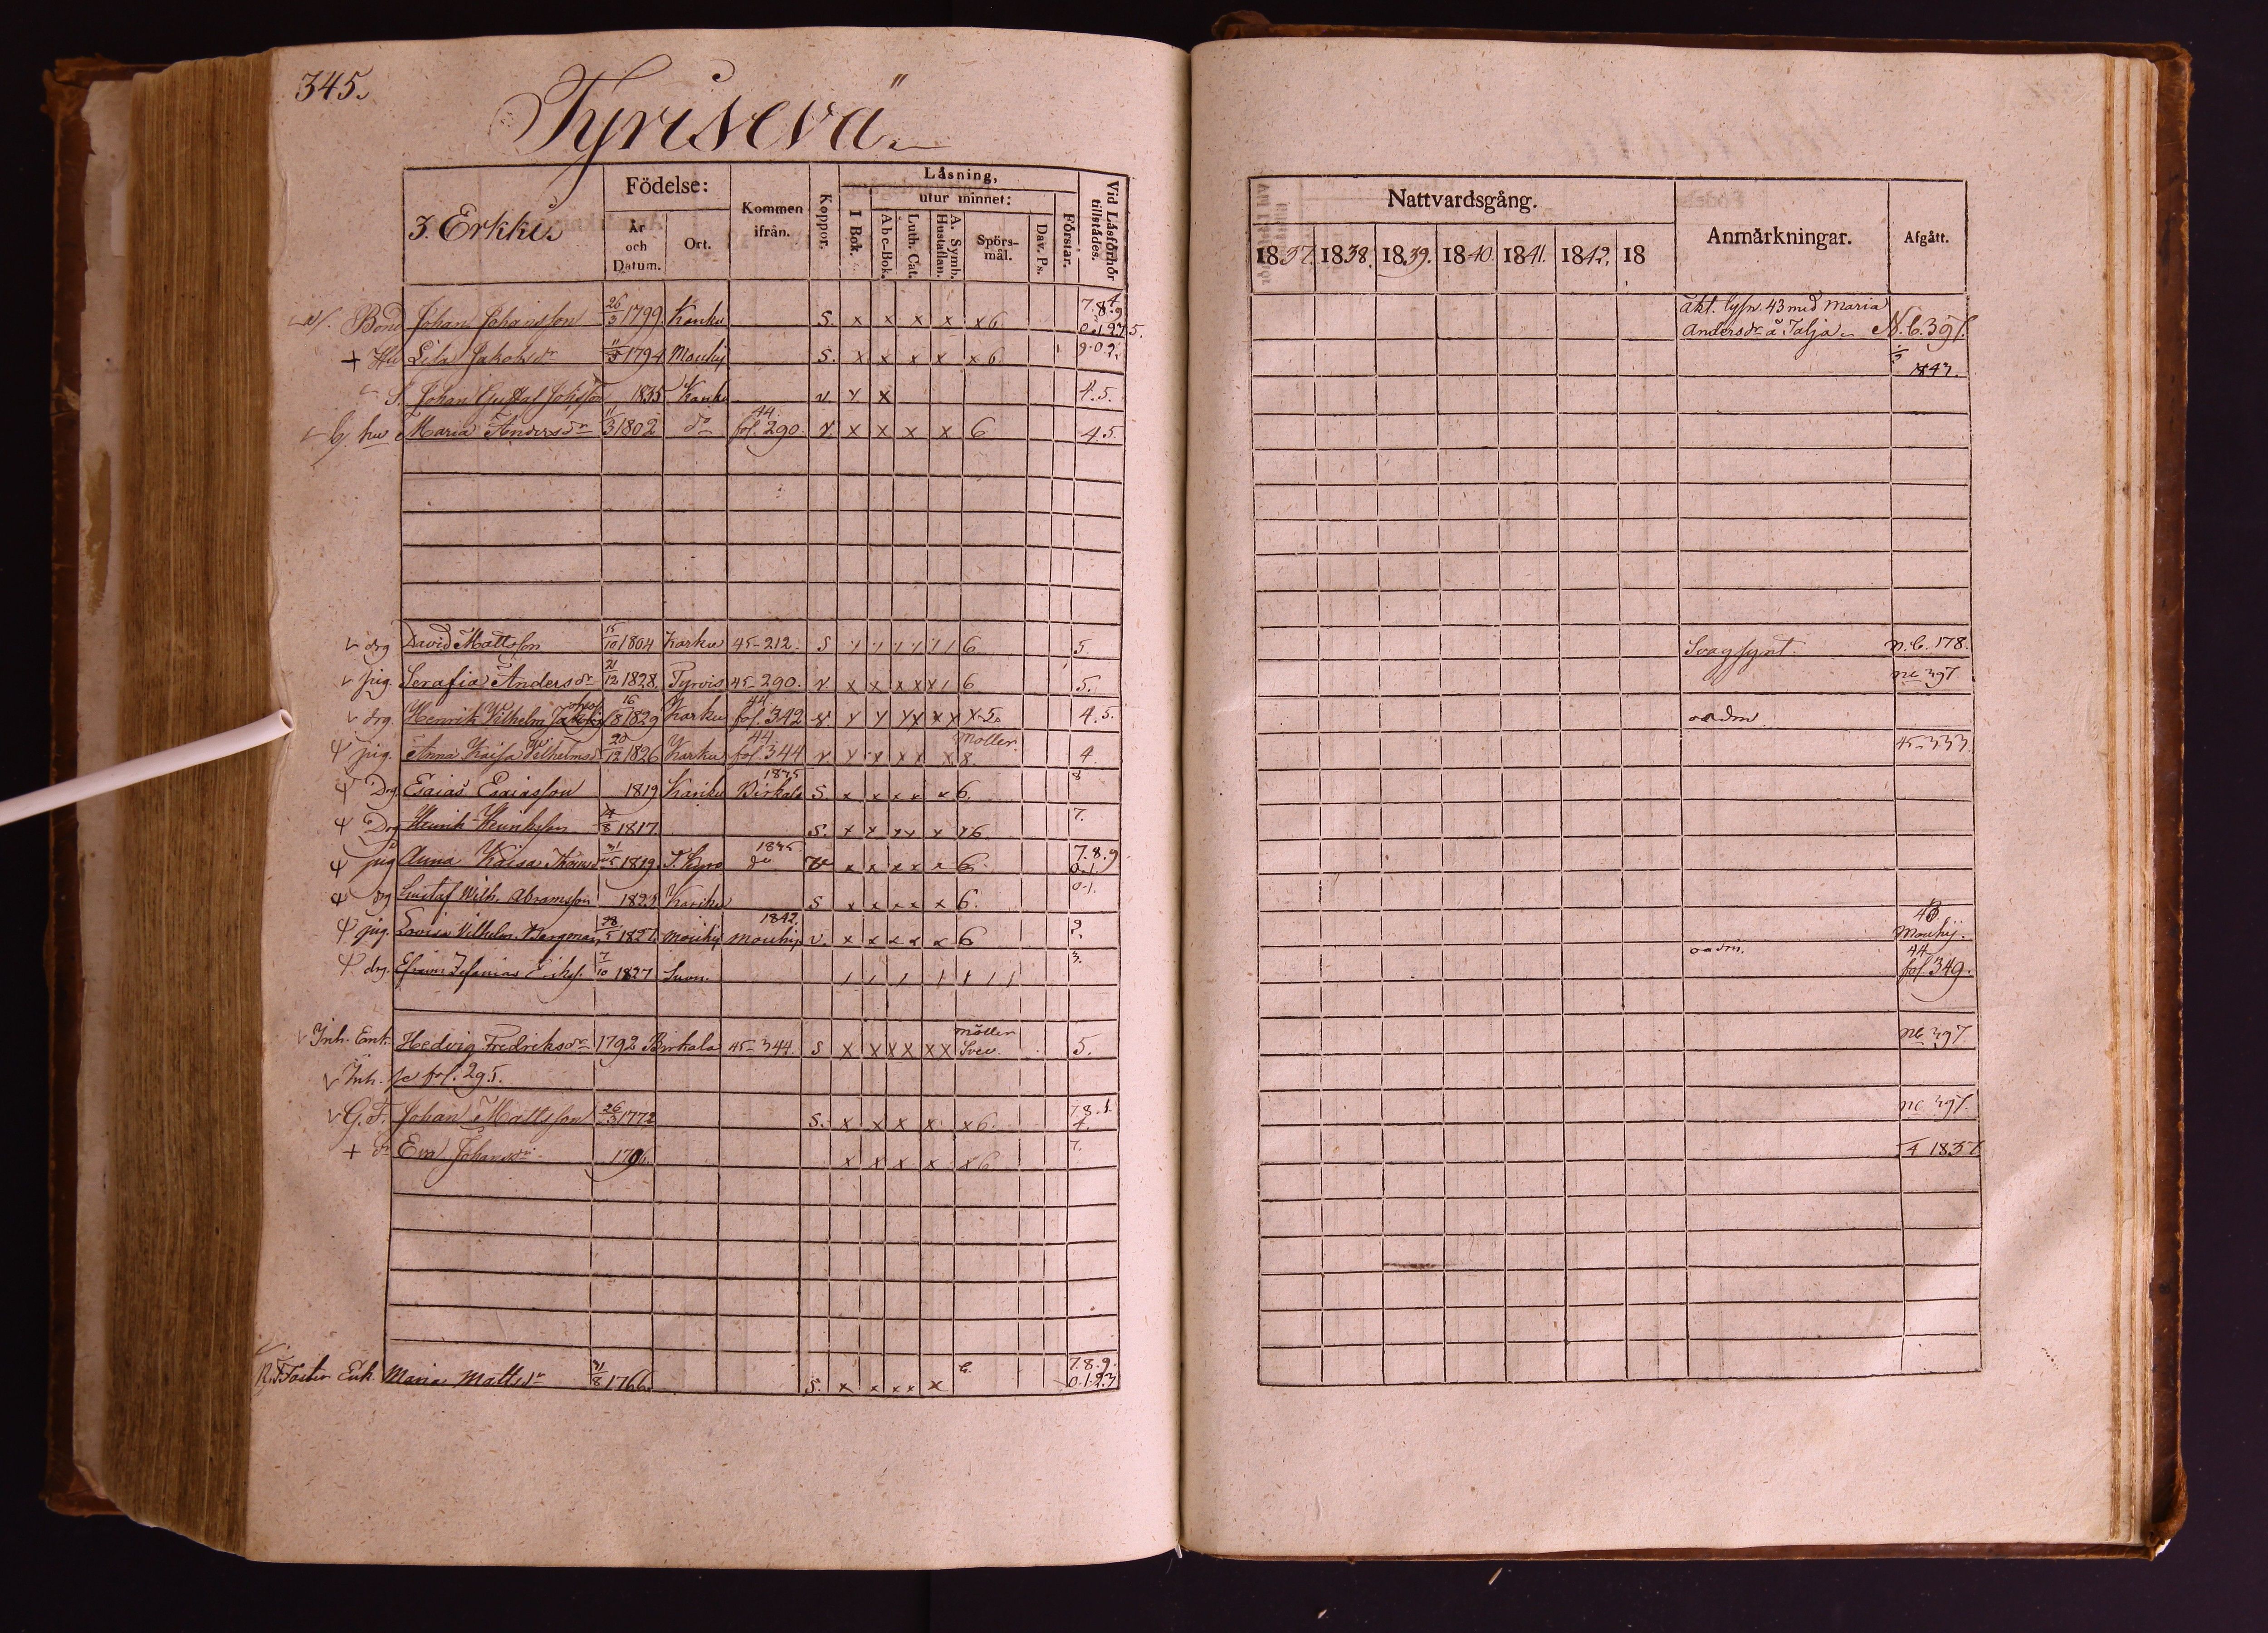 345.
Tyrisevä
3. Erkki
Födelse:
År och Datum.
Ort.
Kommen ifrån.
Koppor.
Läsning,
I Bok.
utur minnet:
Abc-Bok.
Luth. Cat.
A. Symb. Hustaflan.
Spörsmål.
Dav. Ps.
Förstår.
Vid Läsförhör tillstädes.
Nattvardsgång.
1837. 1838. 1839. 1840. 1841. 1842. 18
Anmärkningar.
Afgått.
Bond Johan Johansson 26/3 1799 Karku S. x x x x x 6 7.8.9 äkt. lysn. 43 med Maria Andersdr å Talja N.b. 397.
+ Hu Lisa Jakobsdr 1794 Mouhij S. x x x x x 6 9.0.2. 1843.
S. Johan Gustaf 1835 Karku v x x 4.5.
b. hu Maria Andersdr 11/3 1802 do 44. fol. 290. v. x x x x 6 4.5.
drg David Mattsson 15/10 1804 Karku 45-212. S 6 5. Svagsynt. n.b. 178.
pig. Serafia Andersdr 21/12 1828. Tyrvis 45-290. v x x x x x 6 5. nb 397
drg. Henrik Wilhelm 16/8 1829 Karku 44. fol. 342 5. 4.5. oadm.
pig. Anna Kaisa Vilhelmsd 20/12 1826 Karku 44. fol. 344 v x x x x x Möller 8 4. 45-333
Drg. Esaias Esaiasson 1819 Karku 1835 Birkala S. x x x x x 6. 8
Drg Henrik Henriksson 1817 S. x x x x x x6 7.
pig Anna Kaisa 31/5 1819. T. Kyro 1835 do v x x x x x 6. 7.8.9 0.1.
drg Gustaf Wilh. Abramsson 1823 Karku S x x x x x 6. 0.1.
pig. Lovisa Vilhelm. Bergman 28/5 1821 Mouhij 1842. Mouhij v. x x x x x 6 2. 43. Mouhij.
drg. Efraim Zefanias Eriks. 7/10 1827 Suon. 3. oadm. 44 fol. 349.
Inh. Enk. Hedvig Fredriksdr 1792 Birkala 45-344. S x x x x x x Möller Svev. 5. nb 397
Inh. se fol. 295.
G.F. Johan Mattsson 26/3 1772 S. x x x x x 6. 7.8.1. 4. nb 397.
+ dr Eva Johansdr 1796. x x x x x 6 7. 1837
Faster Enk. Maria Mattsdr 31/8 1766. S. x x x x x 6. 7.8.9. 0.1.2.3